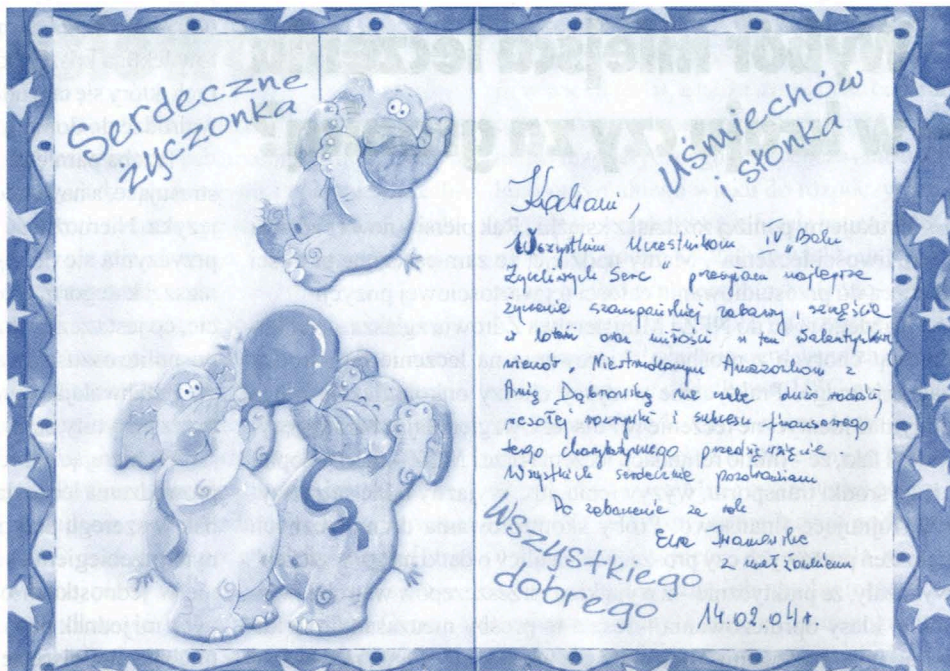 Serdeczne
życzonka
Uśmiechów
słonka
Kochani,
Wszystkim Uczestnikom IV "Balu
Życzliwych Serc" przesyłam najlepsze
życzenia szampańskiej zabawy, szczęścia
w oraz miłości w ten Walentynkowy
wieczór. Niestrudzonym Amazonkom z
Anią Dąbrowską na czele dużo radości,
wesołej muzyki i sukcesu finansowego
tego charytatywnego przedsięwzięcia.
Wszystkich serdecznie pozdrawiam
Do zobaczenia za rok
Ewa
z małżonkiem
Wszystkiego
dobrego
14.02.04r.